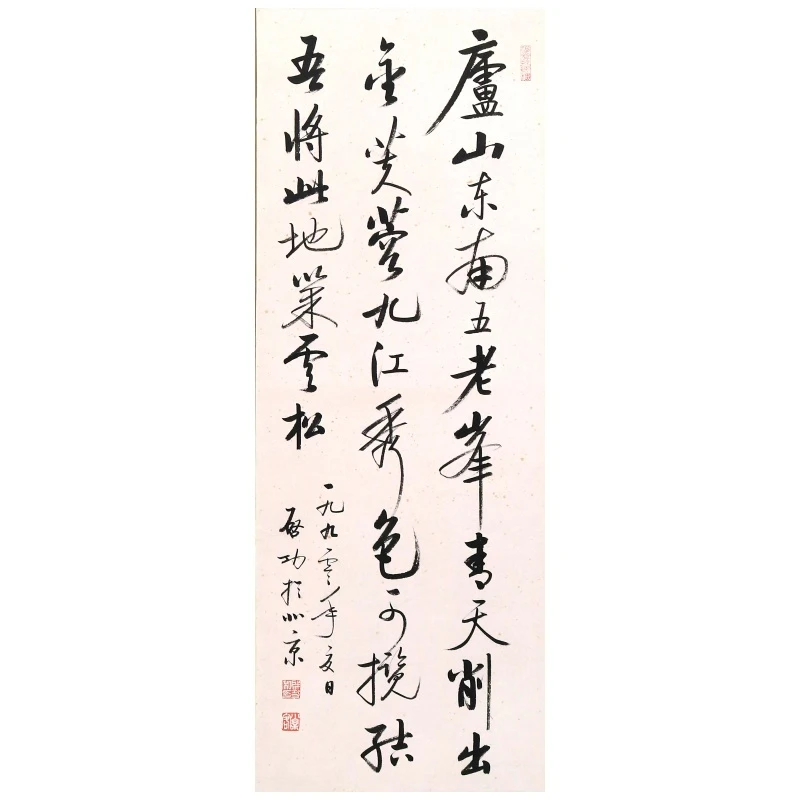 廬山东南五老峯青天削出
金芙蓉九江秀色可攬結
吾将此地巢雲松
一九九零年夏日
启功於北京